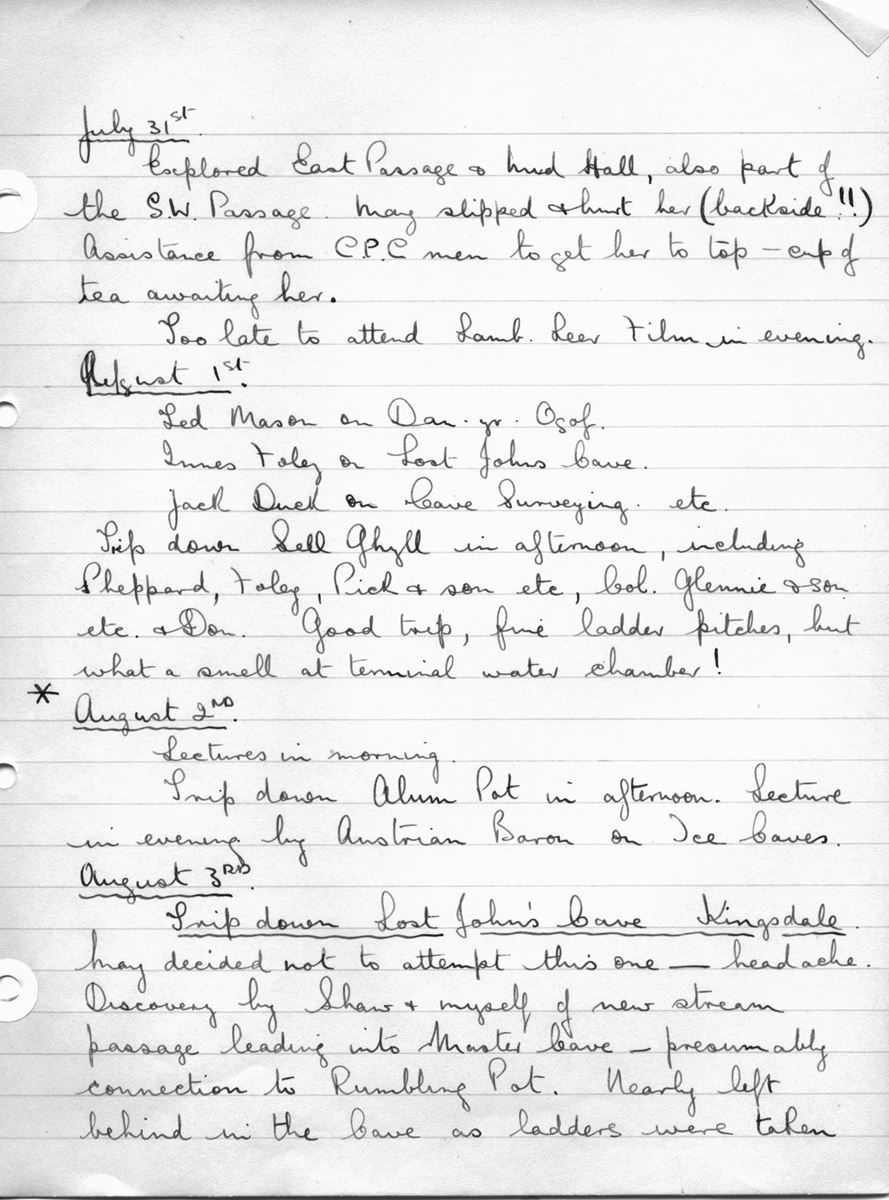 July 31st.
Explored East Passage & Mud Hall, also part of
the S.W. Passage. May slipped & hurt her (backside!!)
Assistance from C.P.C men to get her to top – cup of
tea awaiting her.
Too late to attend Lamb. Leer Film in evening.
August 1st.
Ted Mason on Dan. yr. Ogof.
Innes Foley on Lost Johns Cave.
Jack Duck on Cave Surveying. etc.
Trip down Sell Ghyll in afternoon, including
Sheppard, Foley, Pick & son etc, Col. Glennie & son
etc. & Don. Good trip, fine ladder pitches, but
what a smell at terminal water chamber!
* August 2ND.
Lectures in morning.
Trip down Alum Pot in afternoon. Lecture
in evening by Austrian Baron on Ice Caves.
August 3RD.
Trip down Lost John's Cave Kingsdale.
May decided not to attempt this one — headache.
Discovery by Shaw & myself of new stream
passage leading into Master Cave – presumably
connection to Rumbling Pot. Nearly left
behind in the Cave as ladders were taken